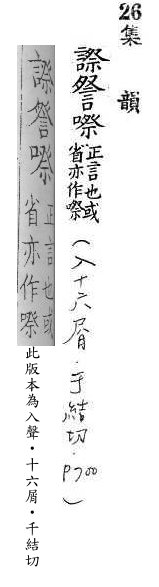 26集韻
詧䜁嚓正言也或省亦作嚓(入十六屑．千結切．P700)
詧䜁嚓正言也或省亦作嚓
此版本為入聲．十六屑．千結切